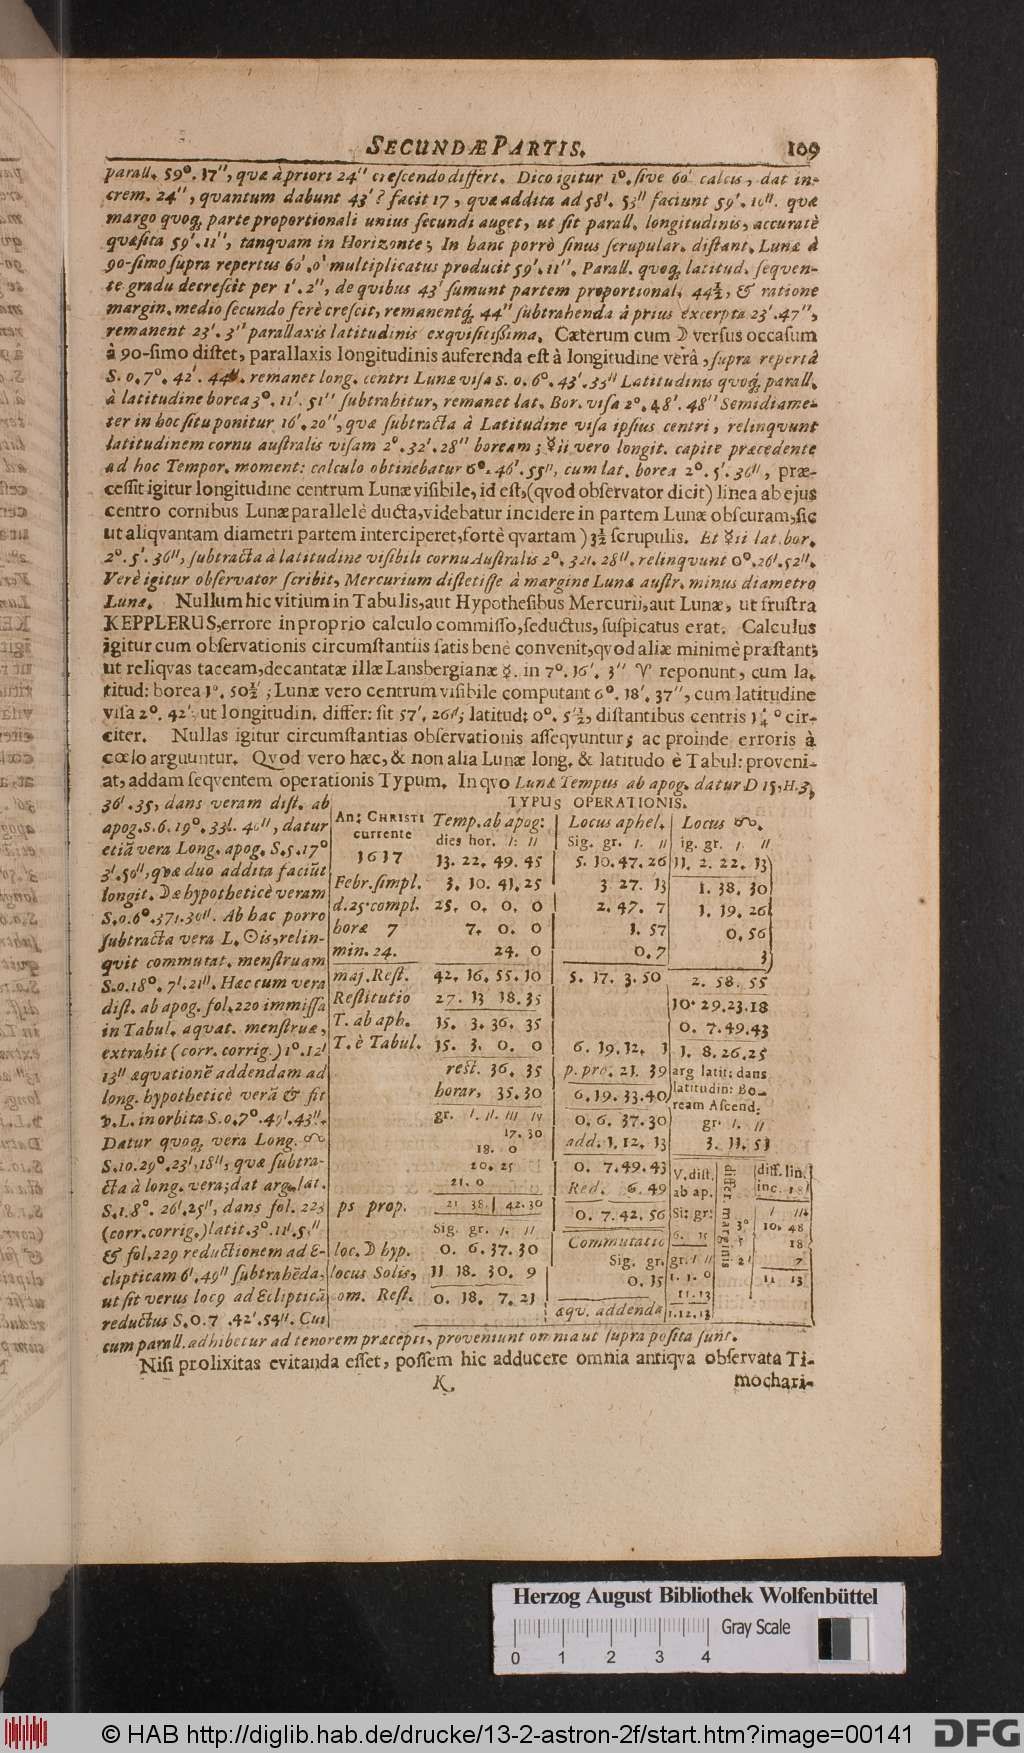 SECUNDÆ PARTIS. 109
parall. 59°. 17'', quæ à priori 24'' crescendo differt. Dico igitur 1°. sive 60' calcis, dat in-
crem. 24'', quantum dabunt 43'? facit 17, quæ addita ad 58'. 53'' faciunt 59'. 10''. quæ
margo quoq; parte proportionali unius secundi auget, ut sit parall. longitudinis, accuratè
quæsita 59'.11'', tanquam in Horizonte; In hanc porrò sinus scrupular. distant. Lunæ à
90-simo supra repertus 60'.0' multiplicatus producit 59'.11''. Parall. quoq; latitud. sequen-
te gradu decrescit per 1'. 2'', de quibus 43' sumunt partem proportional. 44½, & ratione
margin. medio secundo ferè crescit, remanentq́; 44'' subtrahenda à prius excerpta 23'.47'',
remanent 23'. 3'' parallaxis latitudinis exquisitißima. Cæterum cum ☽ versus occasum
à 90-simo distet, parallaxis longitudinis auferenda est à longitudine verâ, supra repertâ
S. 0. 7°. 42'. 44''. remanet long. centri Lunæ visa S. 0. 6°. 43'. 33'' Latitudinis quoq́; parall.
à latitudine borea 3°. 11'. 51'' subtrahitur, remanet lat. Bor. visa 2°. 48'. 48'' Semidiame-
ter in hoc situ ponitur 16'. 20'', quæ subtracta à Latitudine visa ipsius centri, relinqvunt
latitudinem cornu australis visam 2°. 32'. 28'' boream; ☿ii vero longit. capite præcedente
ad hoc Tempor. moment: calculo obtinebatur 6°. 46'. 55'', cum lat. borea 2°. 5'. 36'', præ-
cessit igitur longitudine centrum Lunæ visibile, id est, (qvod observator dicit) linea ab ejus
centro cornibus Lunæ parallelè ducta, videbatur incidere in partem Lunæ obscuram, sic
ut aliqvantam diametri partem interciperet, fortè qvartam ) 3½ scrupulis. Et ☿ii lat. bor.
2°. 5'. 36'', subtracta à latitudine visibili cornu Australis 2°. 32'. 28''. relinqvunt 0°. 26'. 52''.
Verè igitur observator scribit, Mercurium distetisse à margine Lunæ austr. minus diametro
Lunæ. Nullum hic vitium in Tabulis, aut Hypothesibus Mercurii, aut Lunæ, ut frustra
KEPPLERUS, errore in proprio calculo commisso, seductus, suspicatus erat. Calculus
igitur cum observationis circumstantiis satis bene convenit, qvod aliæ minimè præstant;
ut reliqvas taceam, decantatæ illæ Lansbergianæ ☿. in 7°. 16'. 3'' ♈ reponunt, cum la-
titud: borea 1°. 50½'; Lunæ vero centrum visibile computant 6°. 18'. 37'', cum latitudine
visa 2°. 42'. ut longitudin. differ: fit 57'. 26''; latitud: 0°. 5'½, distantibus centris 1¼° cir-
citer. Nullas igitur circumstantias observationis asseqvuntur; ac proinde erroris à
cœlo arguuntur. Qvod vero hæc, & non alia Lunæ long. & latitudo è Tabul: proveni-
at, addam seqventem operationis Typum. In qvo Lunæ Tempus ab apog. datur D 15, H. 3,
36'. 35, dans veram dist. ab
apog. S. 6. 19°. 33'. 40'', datur
etiā vera Long. apog. S. 5. 17°
3'. 50'', qvæ duo addita faciūt
longit. ☽æ hypotheticè veram
S. 0. 6°. 37'. 30''. Ab hac porro
subtracta vera L. ☉is, relin-
quit commutat. menstruam
S. 0. 18°. 7'. 21''. Hæc cum vera
dist. ab apog. fol. 220 immissa
in Tabul. æquat. menstruæ,
extrahit (corr. corrig.) 1°. 12'
13'' æquationē addendam ad
long. hypotheticè verā & fit
☽. L. in orbita S. 0. 7°. 49'. 43''.
Datur quoq; vera Long. ☊
S. 10. 29°. 23'. 18'', quæ subtra-
cta à long. vera; dat arg. lat.
S. 1. 8°. 26'. 25'', dans fol. 223
(corr. corrig.) latit. 3°. 11'. 51''
& fol. 229 reductionem ad E-
clipticam 6'. 49'' subtrahēda,
ut sit verus locꝰ ad Eclipticā
reductus S. 0. 7. 42'. 54''. Cui
TYPUS OPERATIONIS.
An: CHRISTI Temp. ab apog: Locus aphel. Locus ☊.
currente dies hor. ı: ıı Sig. gr. ı. ıı ig. gr. ı. ıı
1617 13. 22. 49. 45 5. 10. 47. 26 11. 2. 22. 13
Febr. simpl. 3. 10. 41. 25 3 27. 13 1. 38. 30
d. 25 compl. 25. 0. 0. 0 2. 47. 7 1. 19. 26
horæ 7 7. 0. 0 1. 57 0. 56
min. 24. 24. 0 0. 7 3
maj. Rest. 42. 16. 55. 10 5. 17. 3. 50 2. 58. 55
Restitutio 27. 13 18. 35 10. 29. 23. 18
T. ab aph. 15. 3. 36. 35 0. 7. 49. 43
T. è Tabul. 15. 3. 0. 0 6. 19. 12. 1 1. 8. 26. 25
rest. 36. 35 p. pro. 21. 39 arg latit: dans
horar. 35. 30 6. 19. 33. 40 latitudin: Bo-
ream Ascend:
gr. ı. ıı. ııı ıv 0. 6. 37. 30 gr ı. ıı
17. 30 add. 1. 12. 13 3. 11. 51
18. 0
20. 25 0. 7. 49. 43 V. dist. differ. marginis diff. lin.
21. 0 Red. 6. 49 ab ap. inc. 18
ps prop. 21 38. 42. 30 0. 7. 42. 56 Si: gr: 3° ı ıı
Sig. gr. ı. ıı Commutatio 6. 15 5 10. 48
loc. ☽ hyp. 0. 6. 37. 30 Sig. gr. gr. ı ıı 2' 18
locus Solis, 11 18. 30. 9 0. 15 1. 1. 0 7
om. Rest. 0. 18. 7. 21 11. 13 11 13
æqv. addenda 1. 12. 13
cum parall. adhibetur ad tenorem præcepti, proveniunt omnia ut supra posita sunt.
Nisi prolixitas evitanda esset, possem hic adducere omnia antiqva observata Ti-
K. mochari-
Herzog August Bibliothek Wolfenbüttel
Gray Scale
0 1 2 3 4
© HAB http://diglib.hab.de/drucke/13-2-astron-2f/start.htm?image=00141 DFG